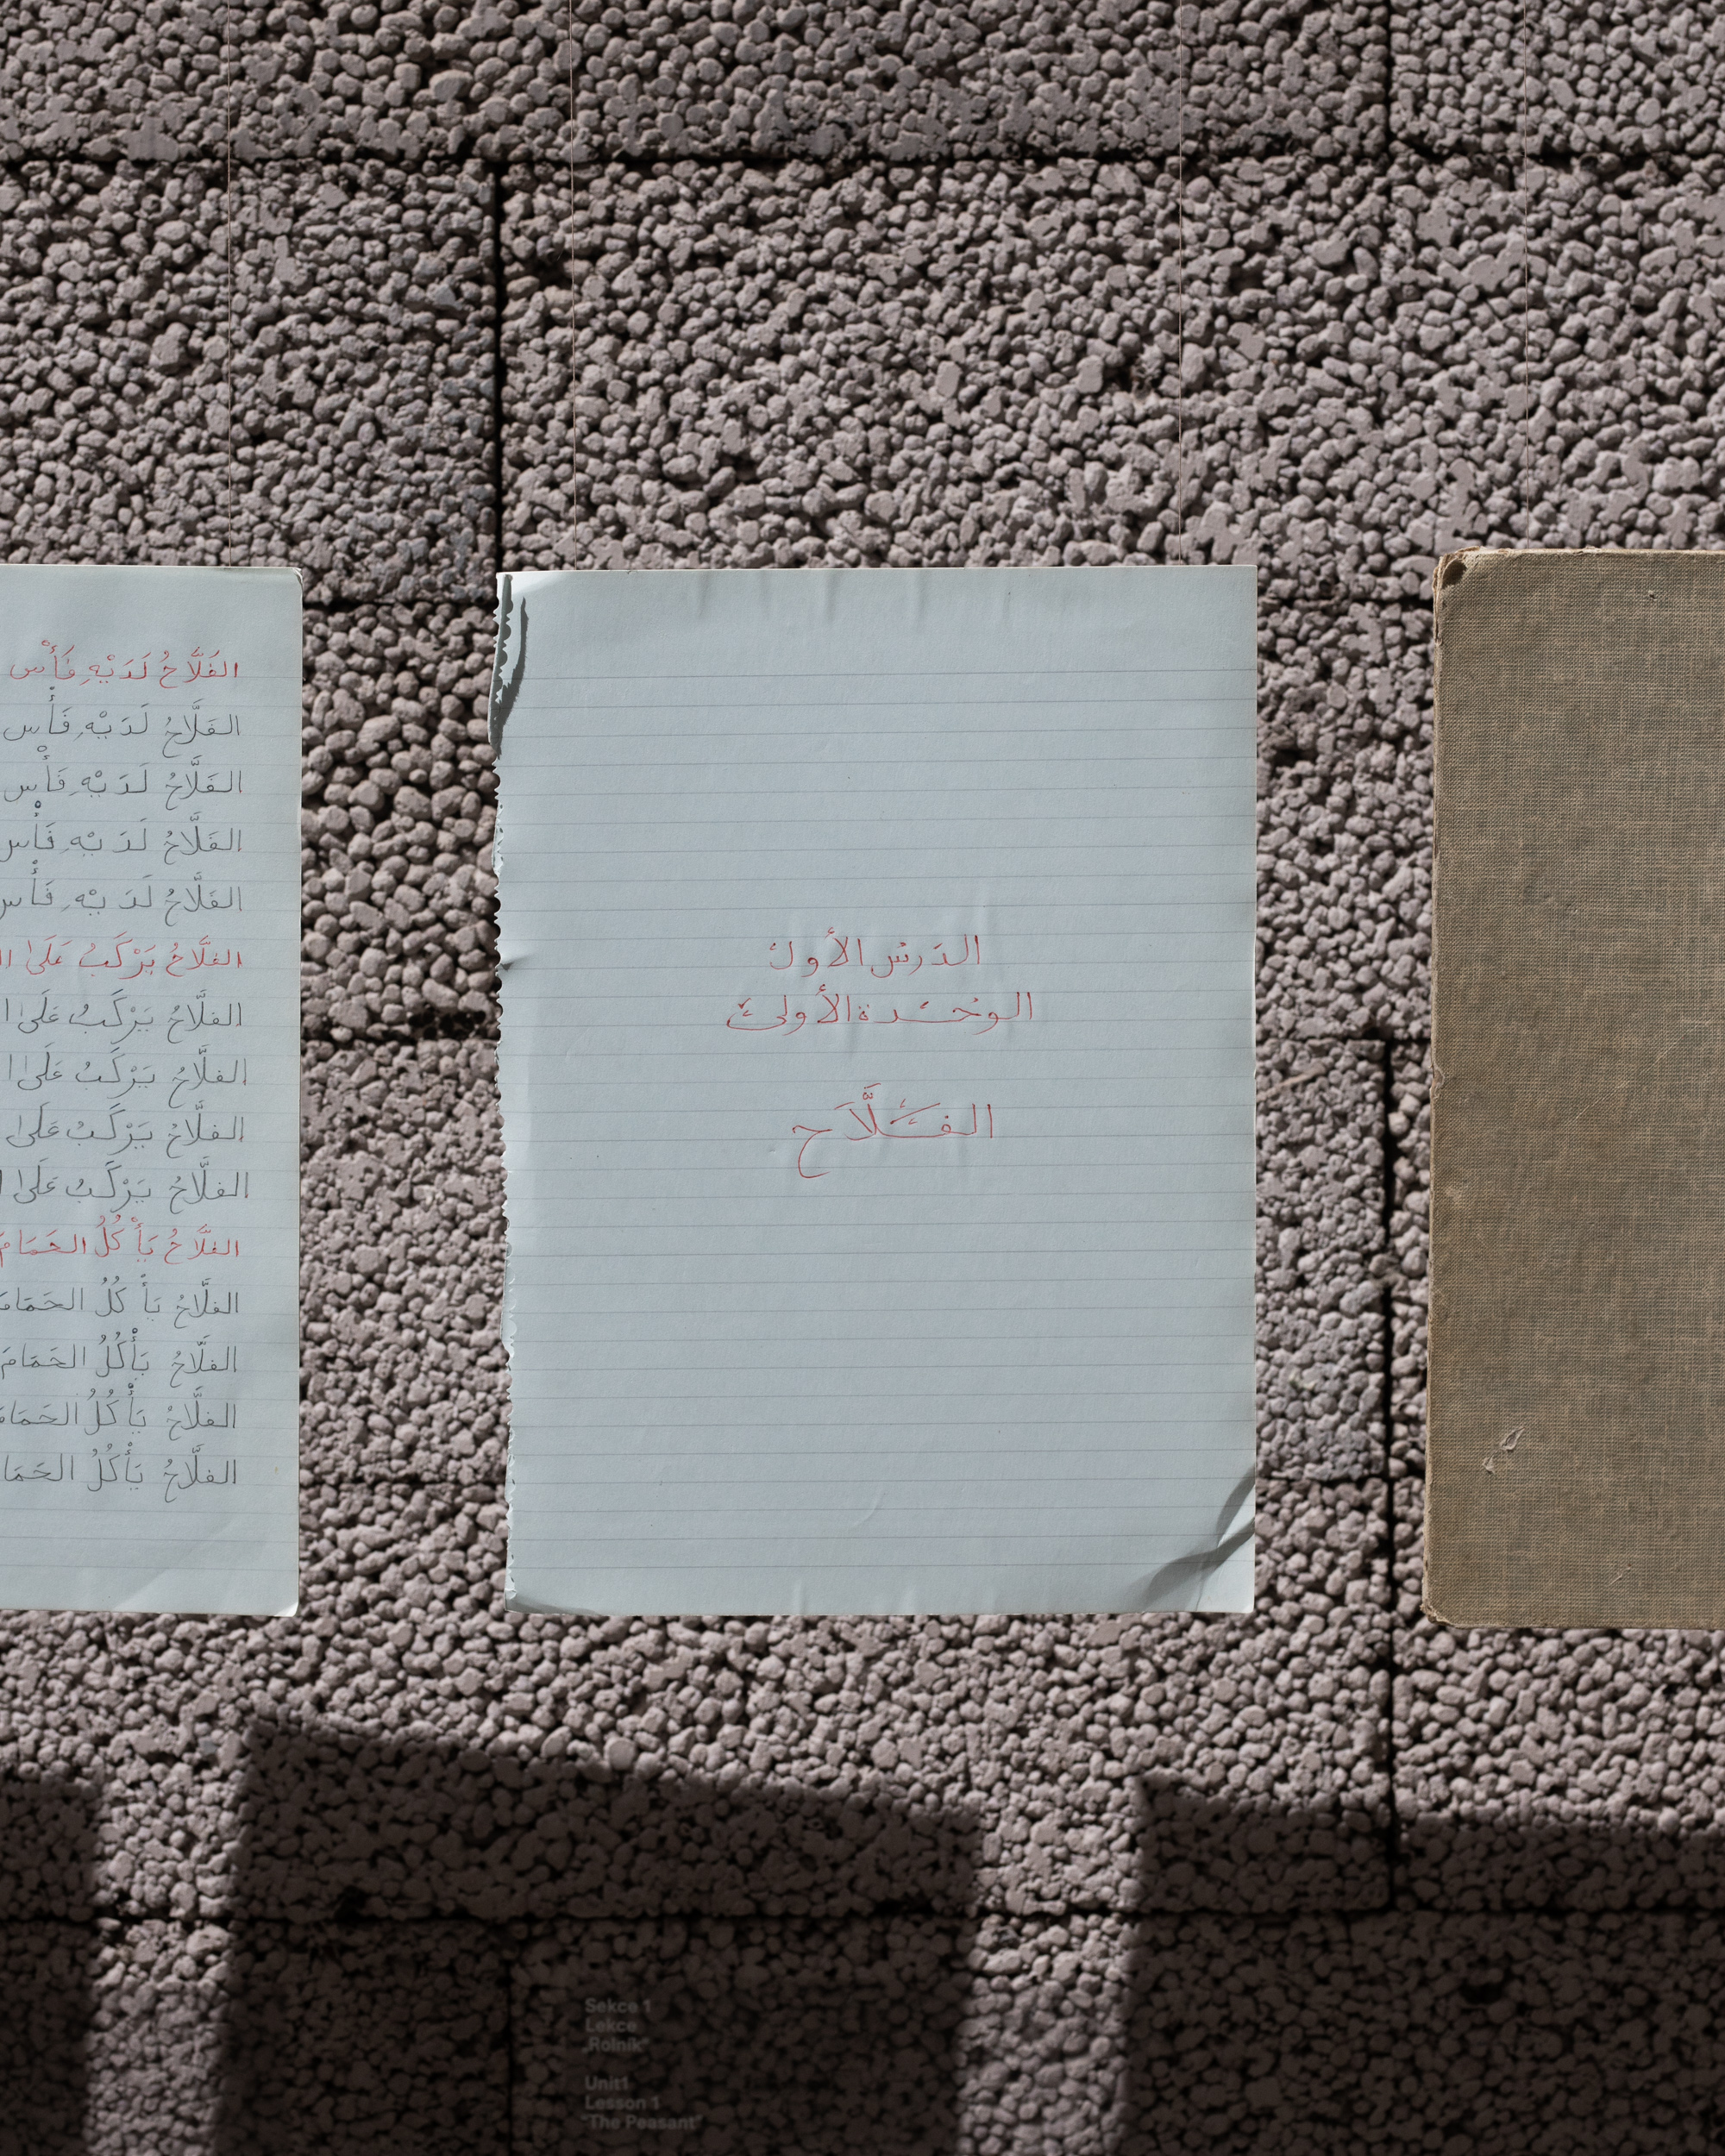 الفَلَّاحُ لَدَيْهِ فَأْس
الفَلَّاحُ لَدَيْهِ فَأْس
الفَلَّاحُ لَدَيْهِ فَأْس
الفَلَّاحُ لَدَيْهِ فَأْس
الفَلَّاحُ لَدَيْهِ فَأْس
الفلَّاحُ يَرْكَبُ عَلَىٰ
الفلَّاحُ يَرْكَبُ عَلَىٰ
الفلَّاحُ يَرْكَبُ عَلَىٰ
الفلَّاحُ يَرْكَبُ عَلَىٰ
الفلَّاحُ يَرْكَبُ عَلَىٰ
الفلَّاحُ يَأْكُلُ الحَمَامَ
الفلَّاحُ يَأْكُلُ الحَمَامَ
الفلَّاحُ يَأْكُلُ الحَمَامَ
الفلَّاحُ يَأْكُلُ
الفلَّاحُ يَأْكُلُ
الدَرسُ الأول
الوَحَدة الأولىَ
الفَلَّاَح
Sekce 1
Lekce
„Rolník“
Unit1
Lesson 1
“The Peasant”